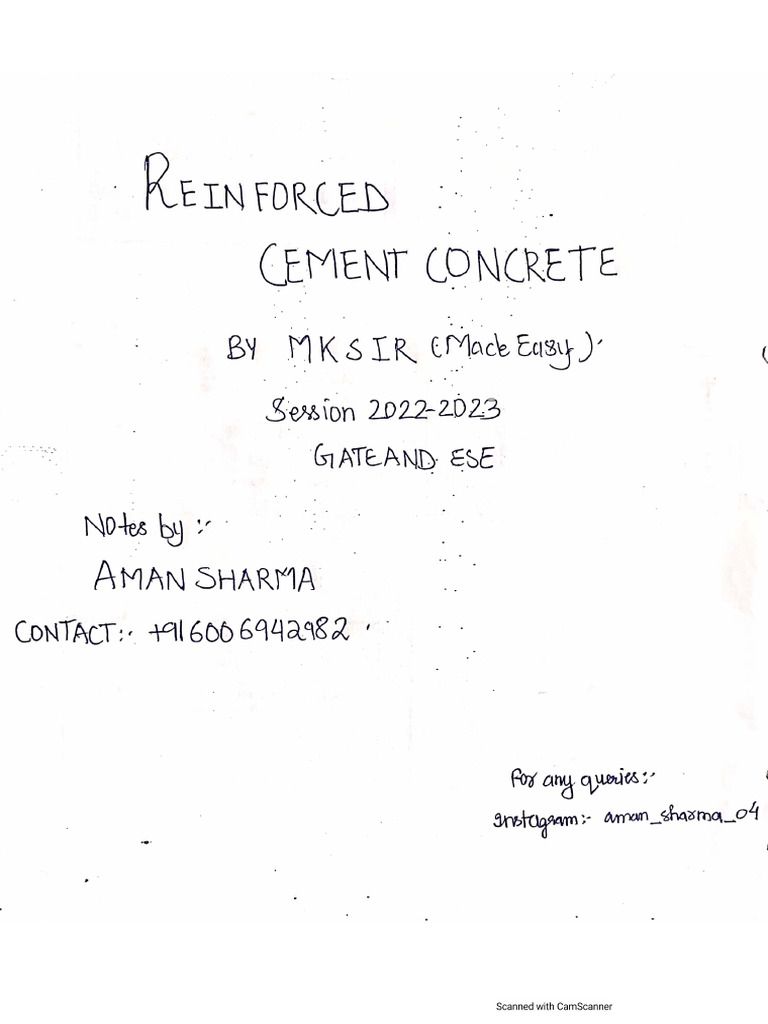 REINFORCED
CEMENT CONCRETE
BY MK SIR (Made Easy)
Session 2022-2023
GATE AND ESE
Notes by :-
AMAN SHARMA
CONTACT:- +916006942982
For any queries:-
Instagram:- aman_sharma_04
Scanned with CamScanner